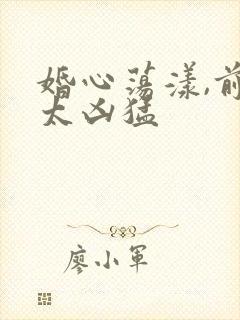 婚心荡漾,前
太凶猛
廖小军